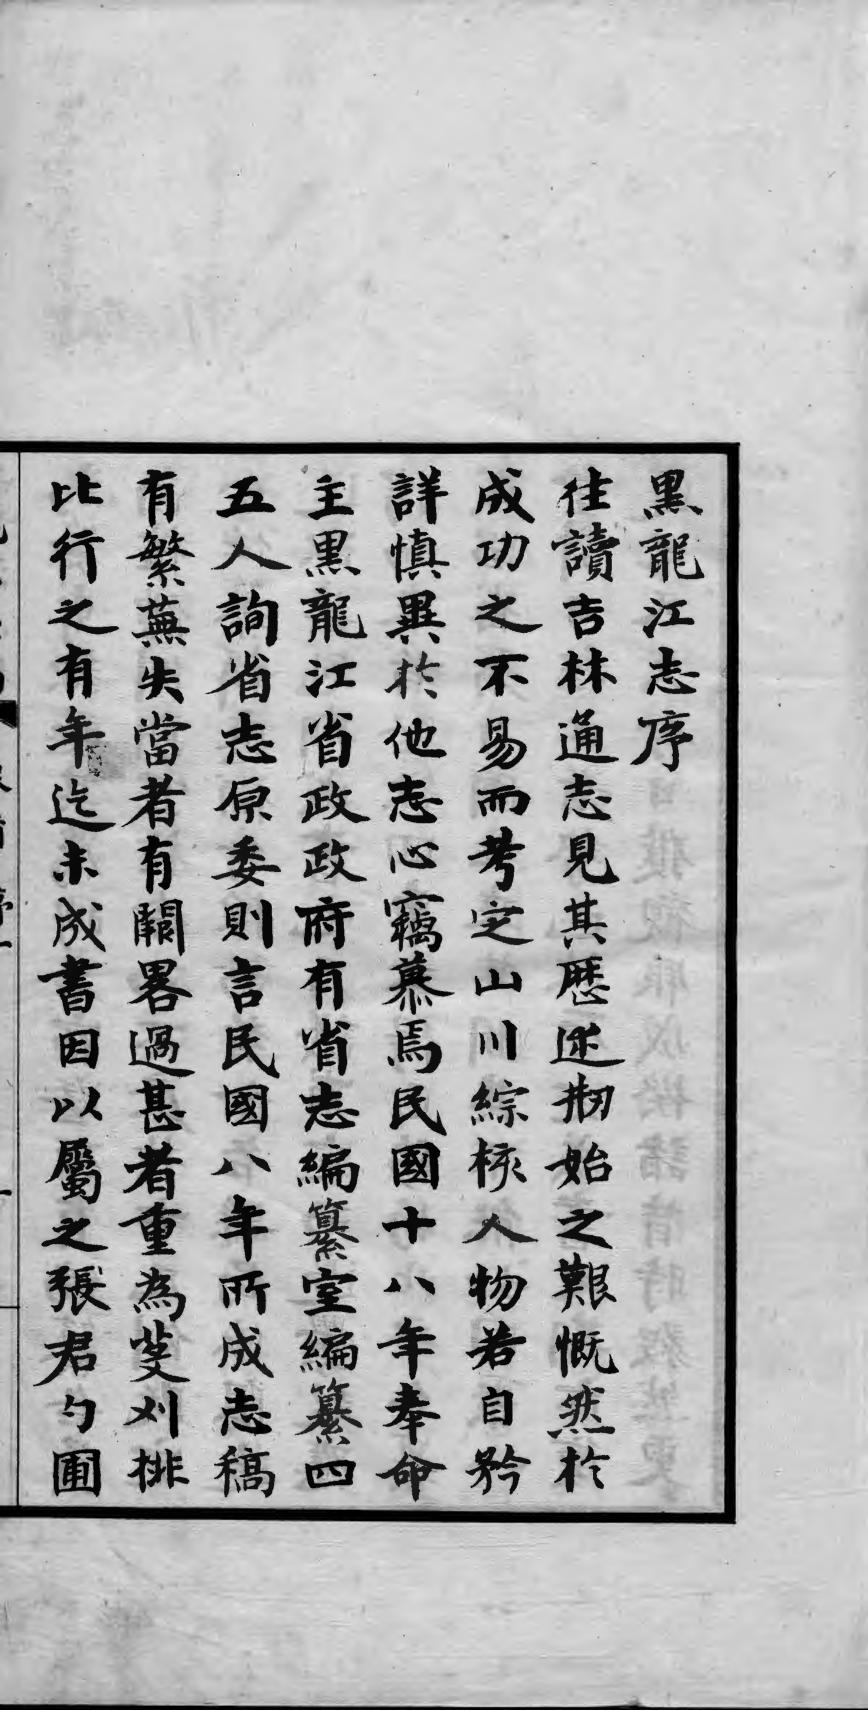 黑龍江志序
往讀吉林通志見其歷述刱始之艱慨然於
成功之不易而考定山川綜核人物若自矜
詳慎異於他志心竊慕焉民國十八年奉命
主黑龍江省政政府有省志編纂室編纂四
五人詢省志原委則言民國八年所成志稿
有繁蕪失當者有闕畧過甚者重為芟刈排
比行之有年迄未成書因以屬之張君勺圃